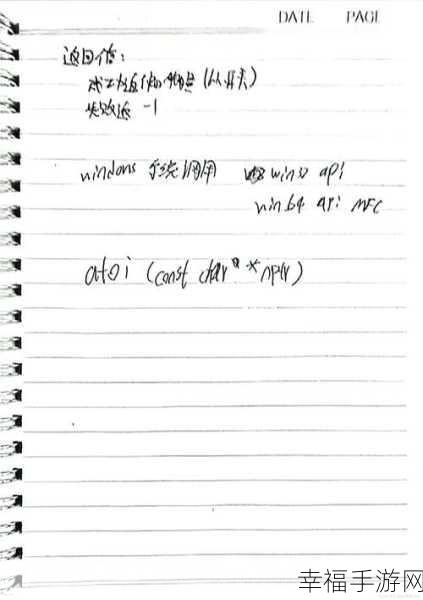 DATE PAGE
返回值:
成功返回 (从开头)
失败返 -1
windows 系统调用 win32 api
win64 api MFC
atoi (const char *nptr)
幸福手游网